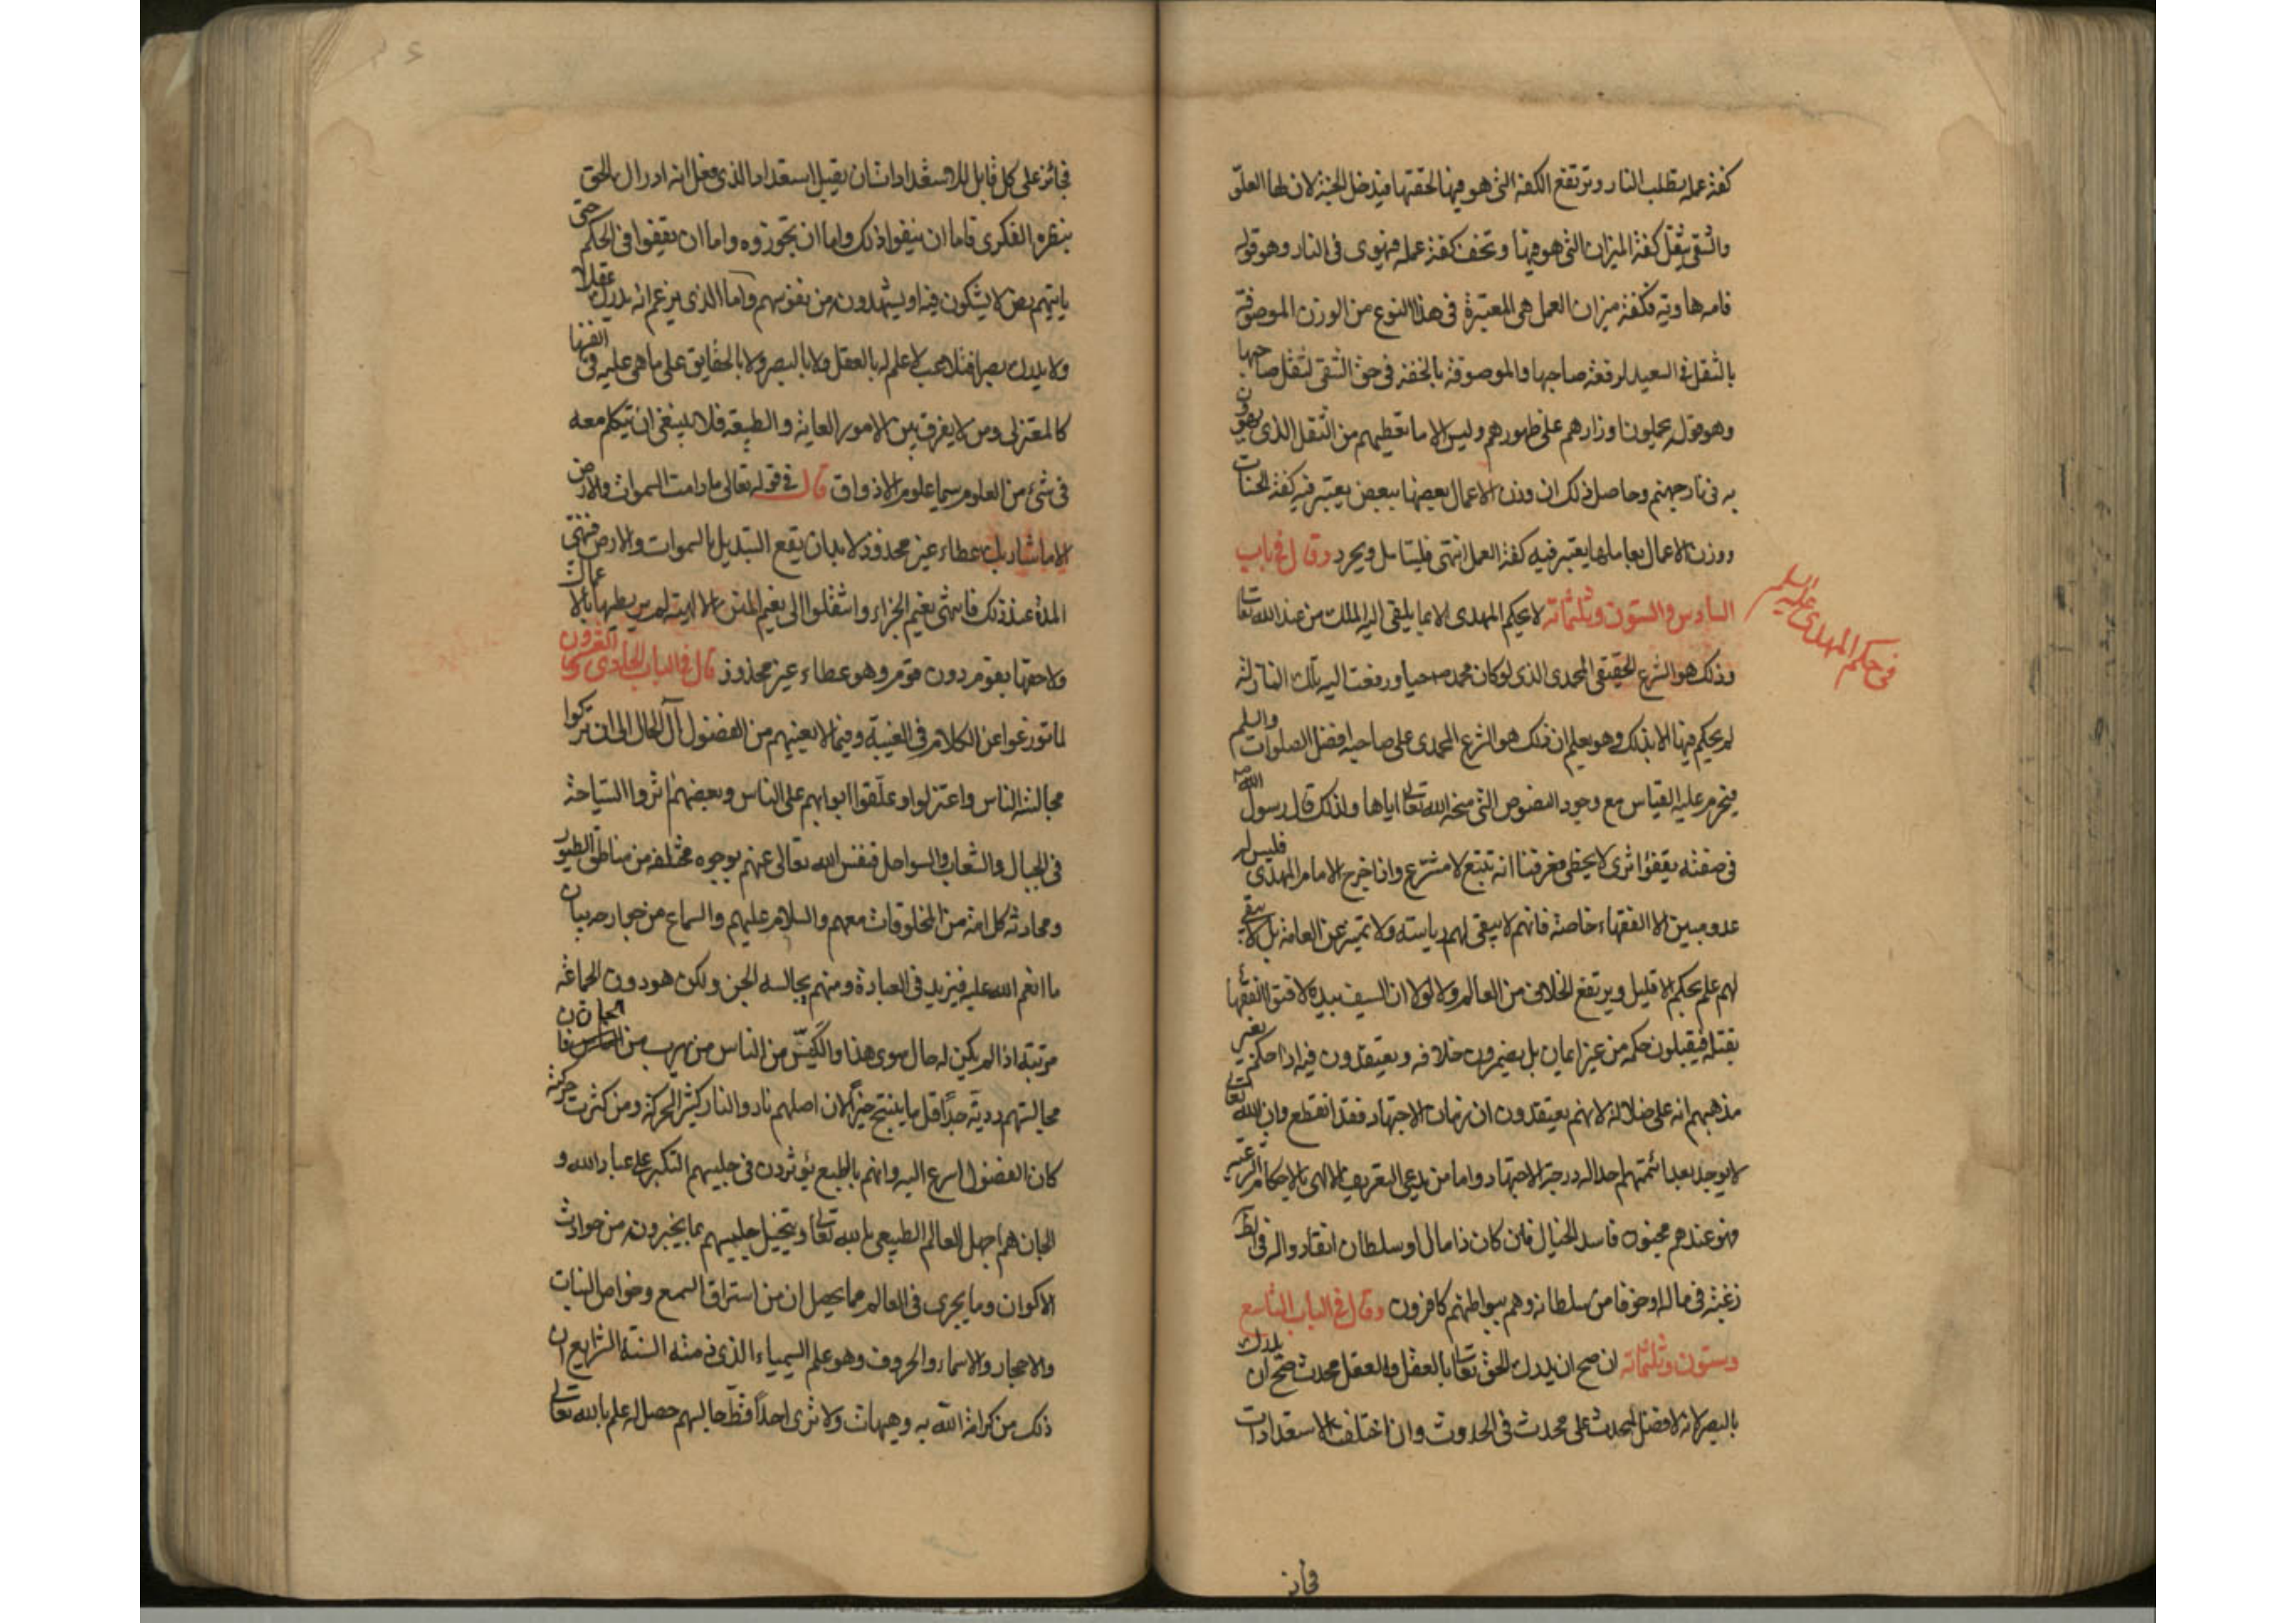 كفة عمله تطلب النار وترتفع الكفة التى هو فيها لخفتها فيدخل الجنة لان لها العلو
والشقى يثقل كفة الميزان التى هو فيها وتخف كفة عمله فيهوى فى النار وهو قوله
فامه هاوية فكفة ميزان العمل هى المعتبرة فى هذا النوع من الوزن الموصوفة
بالثقل فى السعيد لرفعة صاحبها والموصوفة بالخفة فى حق الشقى لثقل صاحبها
وهو قوله يحملون اوزارهم على ظهورهم وليس الا ما تعطيهم من الثقل الذى يهوون
به فى نار جهنم وحاصل ذلك ان وزن الاعمال بعضها ببعض يعتبر فيه كفة الحسنات
ووزن الاعمال بعاملها يعتبر فيه كفة العمل انتهى فليتامل ويحرر وقال فى باب
السادس والستون وثلثمائة لا يحكم المهدى الا بما يلقى اليه الملك من عند الله تعالى
فى حكم المهدى عليه السلم
وذلك هو الشرع الحقيقى المحمدى الذى لو كان محمد ص حيا ورفعت اليه تلك النازلة
لم يحكم فيها الا بذلك وهو يعلم ان ذلك هو الشرع المحمدى على صاحبه افضل الصلوات والسلم
فيحرم عليه القياس مع وجود النصوص التى منحه الله تعالى اياها ولذلك قال رسول الله
فى صفته يقفو اثرى لا يخطى فعرفنا انه متبع لا مشرع واذا خرج الامام المهدى فليس له
عدو مبين الا الفقهاء خاصة فانهم لا يبقى لهم رياسته ولا تمييز عن العامة بل لا يبقى
لهم علم بحكم الا قليل ويرتفع الخلاف من العالم ولولا ان السيف بيده لافتى الفقهاء
بقتله فيقبلون حكمه من غير ايمان بل يضمرون خلافه ويعتقدون فيه اذا حكم بغير
مذهبهم انه على ضلالة لانهم يعتقدون ان زمان الاجتهاد فقد انقطع وان الله تعالى
لا يوجد بعد ائمتهم احدا له درجة الاجتهاد واما من يدعى التعريف الالهى بالاحكام الشرعية
فهو عندهم مجنون فاسد الخيال فان كان ذا مال او سلطان انقادوا له فى الظ
رغبة فى ماله او خوفا من سلطانه وهم ببواطنهم كافرون وقال فى الباب التاسع
وستون وثلثمائة ان صح ان يدرك الحق تعالى بالعقل والعقل محدث صح ان يدرك
بالبصر لانه لا فضل لمحدث على محدث فى الحدوث وان اختلفت الاستعدادات
فجائز
فجائز على كل قابل للاستعدادات ان يقبل استعداد الذى فعل انه ادراك الحق
بنظره الفكرى فاما ان ينفوا ذلك واما ان يجوزوه واما ان يقفوا فى الحكم حتى
ياتيهم نص لا يشكون فيه او يشهدونه من نفوسهم واما الذى يزعم انه يدرك عقلا
ولا يدرك بصرا فمتلاعب لا علم له بالعقل ولا بالبصر ولا بالحقايق على ما هى عليه فى انفسها
كالمعتزلى ومن لا يفرق بين الامور العادية والطبيعة فلا ينبغى ان يتكلم معه
فى شئ من العلوم سيما علوم الاذواق قال فى قوله تعالى ما دامت السموات والارض
الا ما شاء ربك عطاء غير مجذوذ لا بد ان يقع التبديل بالسموات والارض فتنتهى
المدة عند ذلك فانتهى نعيم الجزاء وانتقلوا الى نعيم المنن الالهية لم يربطها بالاعمال
ولا خصها بقوم دون قوم وهو عطاء غير مجذوذ قال فى الباب الحادى والعشرون
لما تورعوا عن الكلام فى الغيبة وفيما لا يعنيهم من الفضول آل الحال الى ان تركوا
مجالسة الناس واعتزلوا وغلقوا ابوابهم على الناس وبعضهم اثروا السياحة
فى الجبال والشعاب والسواحل فنفس الله تعالى عنهم بوجوه مختلفة من مناطق الطيور
ومحادثة كل امة من المخلوقات معهم والسلام عليهم والسماع من جوارحه بيان
ما انعم الله عليه فيزيد فى العبادة ومنهم يجالسه الجن ولكن هو دون الجماعة
مرتبة اذا لم يكن له حال سوى هذا والكيّس من الناس من يهرب من الجان فان
مجالستهم ردية جدًا قل ما ينتج خيرًا لان اصلهم نار والنار كثير الحركة ومن كثرت حركته
كان الفضول اسرع اليه وانهم بالطبع يؤثرون فى جليسهم التكبر على عباد الله و
الجان هم اجهل العالم الطبيعى بالله تعالى ويتخيل جليسهم بما يخبرونه من حوادث
الاكوان وما يجرى فى العالم مما يحصل ان من استراق السمع وخواص النبات
والاحجار والاسماء والحروف وهو علم السيمياء الذى ذمته السنة الشرايع ان
ذلك من كرامة الله به وهيهات ولا ترى احدًا قطّ جالسهم حصل له علم بالله تعالى